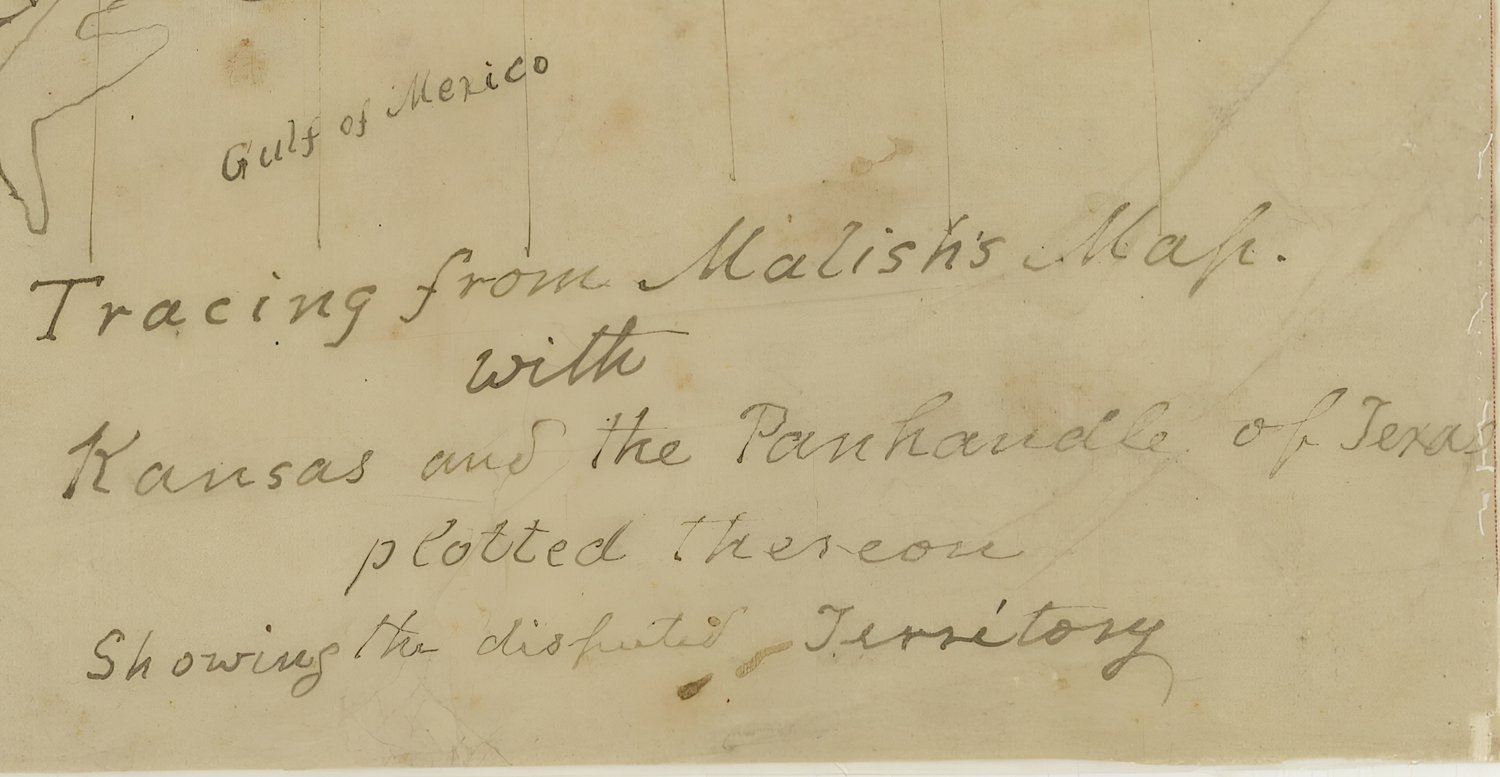 Gulf of Mexico
Tracing from Malish's Map.
with
Kansas and the Panhandle of Texas
plotted thereon
Showing the disputed Territory